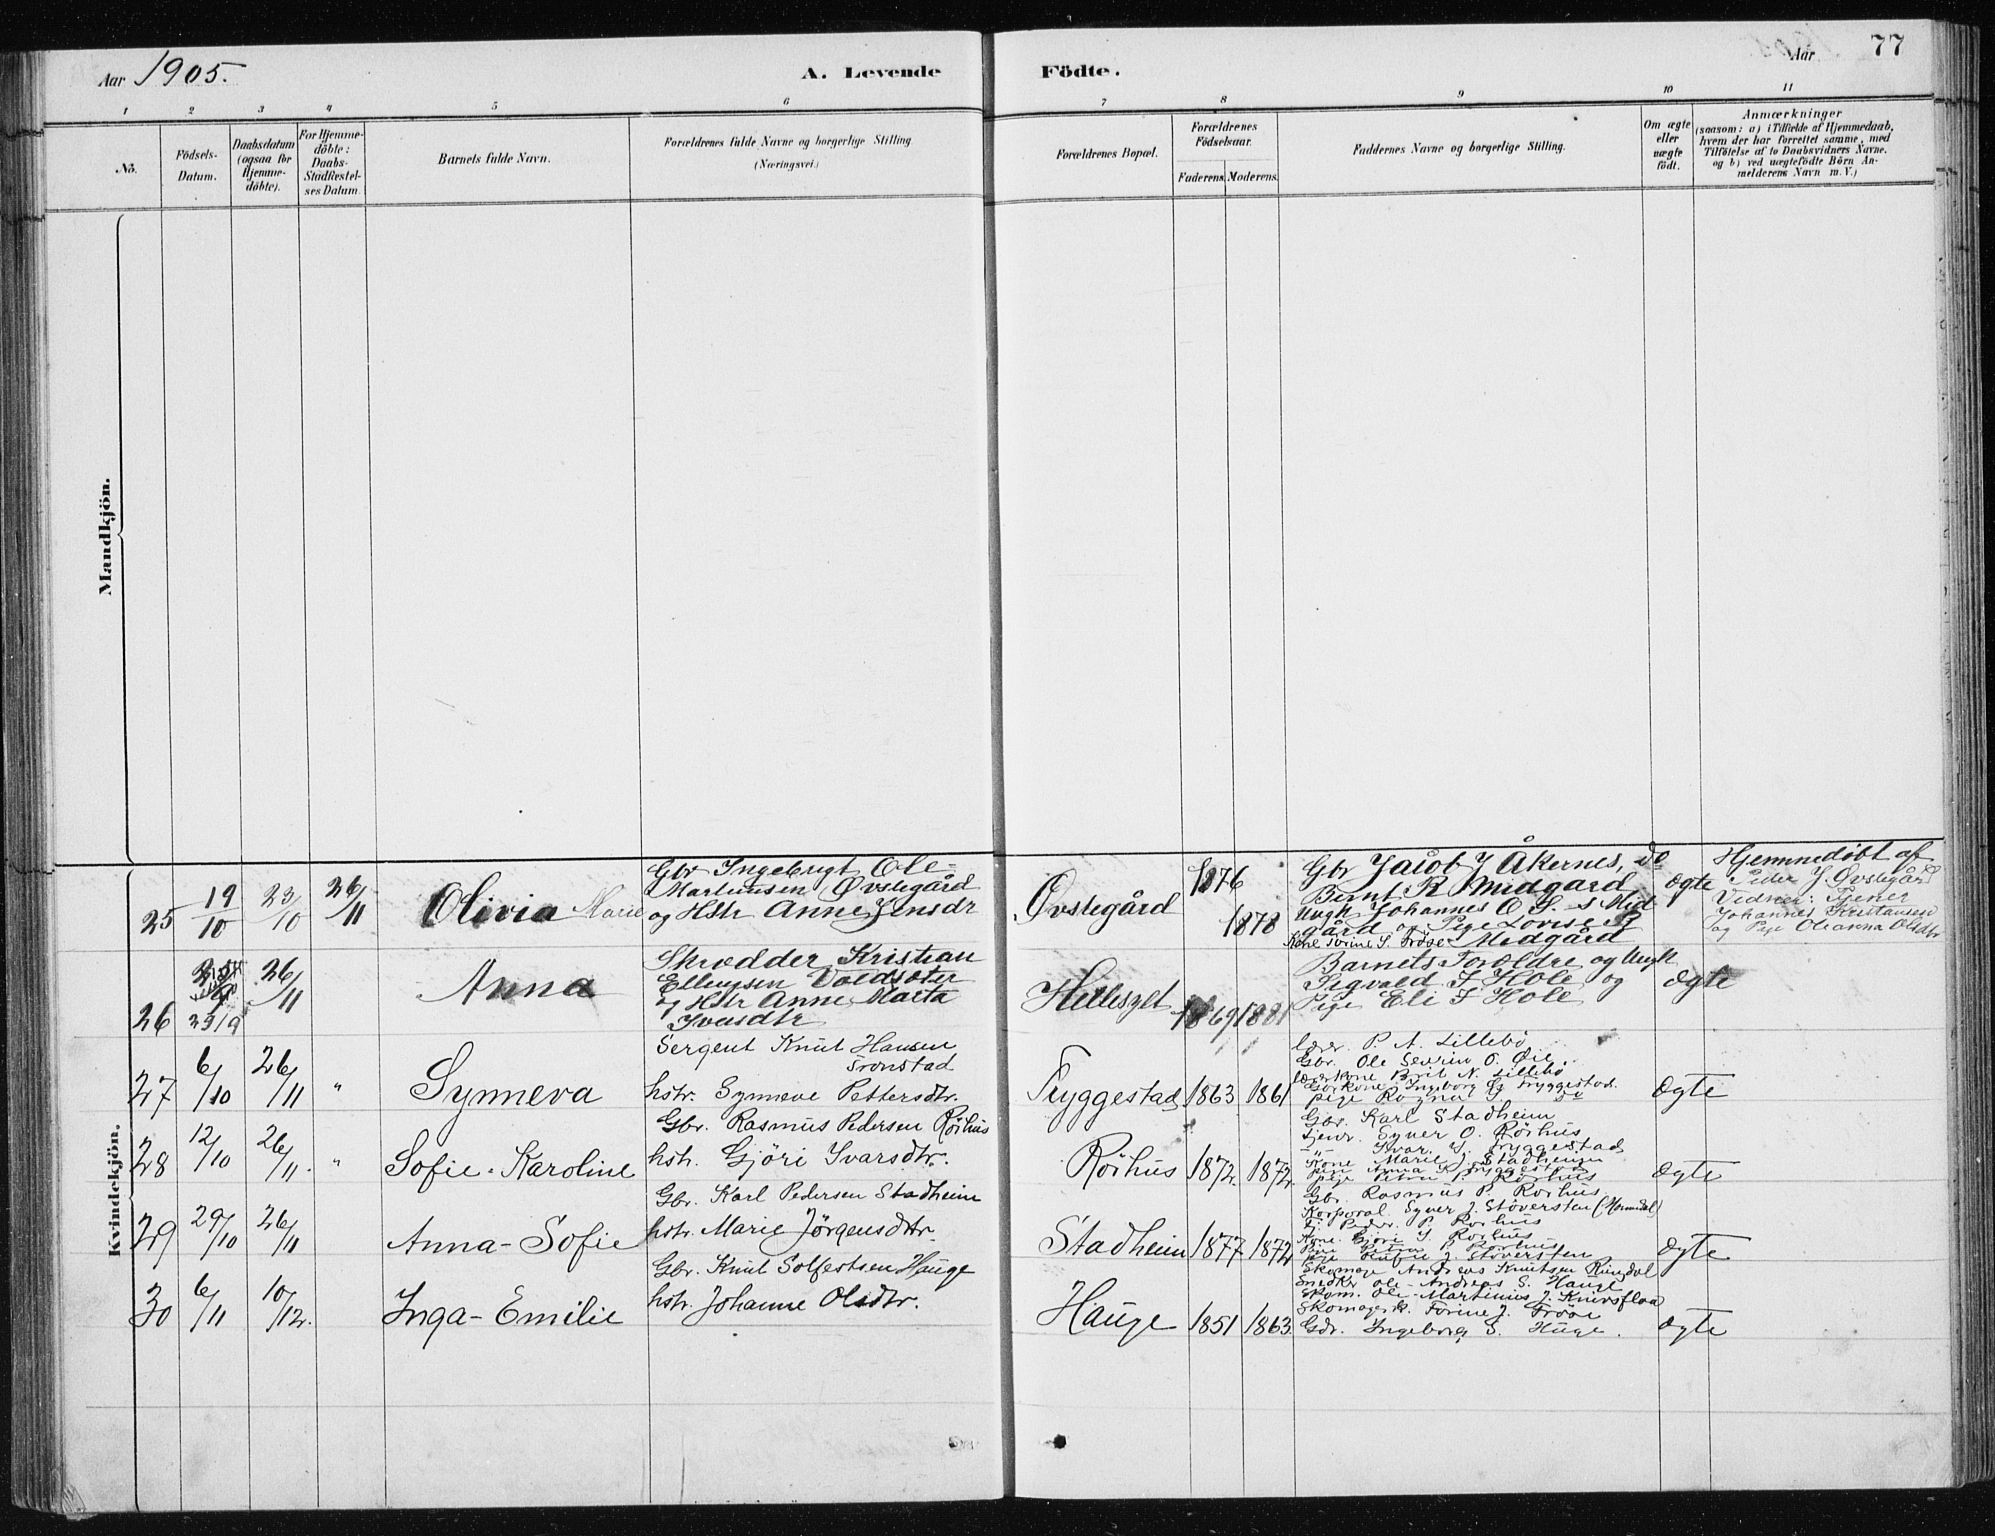 Aar 1905.
A. Levende
Födte.
Aar
77
1 2 3 4 5 6 7 8 9 10 11
No.
Födsels-Datum.
Daabsdatum (ogsaa for Hjemme-döbte).
For Hjemme-döbte: Daabs-Stadfæstel-ses Datum.
Barnets fulde Navn.
Forældrenes fulde Navne og borgerlige Stilling
(Næringsvei.)
Forældrenes Bopæl.
Forældrenes Födselsaar.
Faderens. Moderens.
Faddernes Navne og borgerlige Stilling.
Om ægte eller uægte födt.
Anmærkninger
(saasom: a) i Tilfælde af Hjemmedaab,
hvem der har forrettet samme, med
Tilföielse af to Daabsvidners Navne.
og b) ved uægtefödte Börn An-
melderens Navn m. V.)
Mandkjön.
Kvindekjön.
25 19/10 23/10 26/11 Olivia Marie
Gbr Ingebrigt Ole-
Martinusen Øvstegård
og Hstr Anne Jensdr
Øvstegård 1876 1878
Gbr Jacob J Åkernes, do
Bernt R Midgård
Ungk Johannes O S. s Mid
gård og Pige Lovise P
Midgård
ægte
Hjemmedøbt af
Peder J Øvstegård
Vidner: Tjener
Johannes Kristiansen
og Pige Oleanna Olsdtr
26 23/9 26/11 Anna
Skrædder Kristian
Ellingsen Voldsæter
og Hstr Anne Marta
Ivarsdtr
Hellesylt 1869 1881
Barnets Foreldre og Ungk
Sigvald F Hole og
Pige Eli F Hole
ægte
27 6/10 26/11 " Synneva
Sergent Knut Hansen
Tronstad
hstr. Synneve Pettersdtr.
Tryggestad 1863 1861
Lærer P. A. Lillebö
Gbr. Ole Severin O. Øie.
Lærerkone Brit N. Lillebö
Gbrkone Ingeborg Tryggestad.
pige Ragna do
ægte
28 12/10 26/11. " Sofie-Karoline
Gbr. Rasmus Pedersen Rörhus
hstr. Gjöri Ivarsdtr.
Rörhus 1872. 1872.
Gbr. Karl Stadheim
tjener. Syver O. Rörhus
-"- Ivar J. Tryggestad
Kone Marie J. Stadheim
pige Anna K. Tryggestad
pige Petra P. Rörhus
ægte
29 29/10 26/11 Anna-Sofie
Gbr. Karl Pedersen Stadheim
hstr. Marie Jörgensdtr.
Stadheim 1877 1872
Gbr. Rasmus P. Rörhus
Korporal. Syver J. Stöversten (Hornindal)
tj. Peder. P. Rorhus
Kone. Gjöri I. Rorhus
Pige Petra P Rorhus
pige J. Stöversten
ægte
30 6/11 10/12. Inga-Emilie
Gbr. Knut Solfestsen Hauge
hstr. Johanne Olsdtr.
Hauge 1851 1863.
Skomager Andreas Knutsen Rindal
Snedker Ole-Andreas S. Hauge
Skom. Ole-Martinius J. Knivsflaa
Skomager k. Torine J. Fröse
Gdr. Ingeborg S. Huge.
ægte